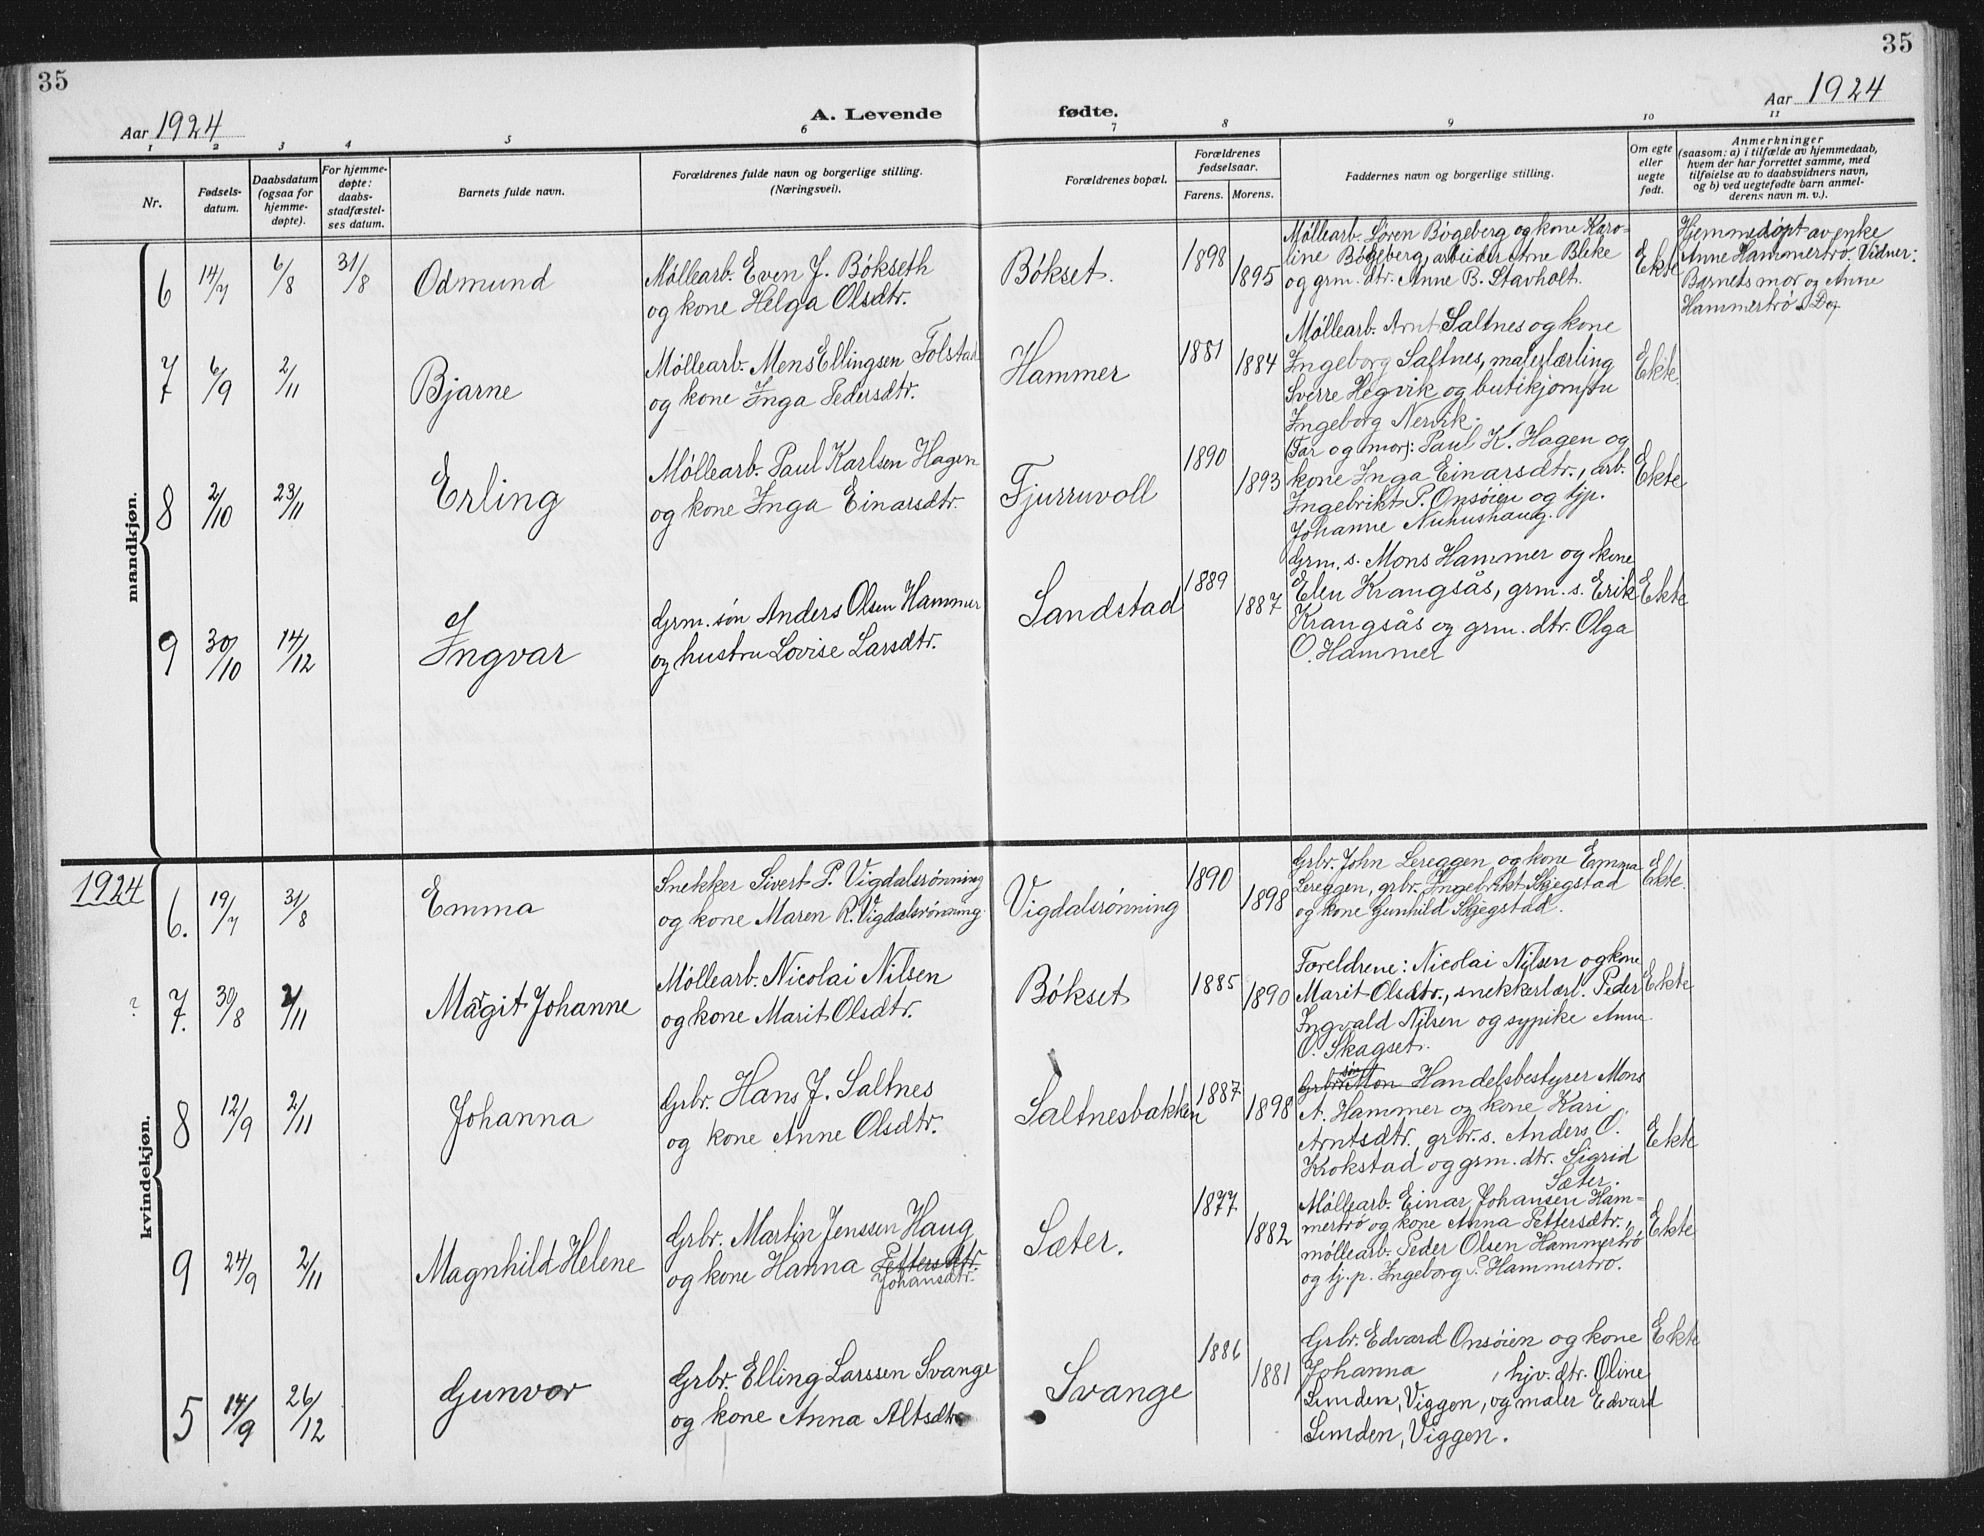 35
35
Aar 1924
A. Levende fødte.
Aar 1924
1 2 3 4 5 6 7 8 9 10 11
Nr.
Fødsels-
datum.
Daabsdatum
(ogsaa for
hjemme-
døpte).
For hjemme-
døpte:
daabs-
stadfæstel-
ses datum.
Barnets fulde navn.
Forældrenes fulde navn og borgerlige stilling.
(Næringsvei).
Forældrenes bopæl.
Forældrenes
fødselsaar.
Farens. Morens.
Faddernes navn og borgerlige stilling.
Om egte
eller
uegte
født.
Anmerkninger
(saasom: a) i tilfælde av hjemmedaab,
hvem der har forrettet samme, med
tilføielse av to daabsvidners navn,
og b) ved uegtefødte barn anmel-
derens navn m. v.).
mandkjøn.
6 14/7 6/8 31/8 Odmund
Møllearb. Even J. Bökseth
og kone Helga Olsdtr.
Bökset. 1898 1895
Møllearb. Søren Bögeberg og kone Karo-
line Bögeberg, arbeider Arne Bleke
og grm. dtr. Anne B. Stavholt.
Ekte
Hjemmedöpt av enke
Anne Hammertrö. Vidner:
Barnets mor og Anne
Hammertrö
7 6/9 2/11 Bjarne
Møllearb. Mens Ellingsen Folstad
og kone Inga Pedersdtr.
Hammer 1881 1884
Møllearb. Arnt Saltnes og kone
Ingeborg Saltnes, malerlærling
Sverre Hegvik og butikjomfru
Ingeborg Nervik.
Ekte.
8 2/10 23/11 Erling
Møllearb. Paul Karlsen Hagen
og kone Inga Einarsdtr.
Fjurruvoll 1890 1893
Far og mor: Paul K. Hagen og
kone Inga Einarsdtr., arb.
Ingebrikt P. Onsöien og tjp.
Johanne Nuhushaug.
Ekte
9 30/10 14/12 Ingvar
Grm. sön Anders Olsen Hammer
og hustru Lovise Larsdtr.
Sandstad 1889 1887
Grm. s. Mons Hammer og kone
Elen Krangsås, grm. s. Erik
Krangsås og grm. dtr. Olga
O. Hammer
Ekte
1924
kvindekjøn.
6. 19/7 31/8 Emma
Snekker Sivert P. Vigdalsrönning
og kone Maren R. Vigdalsrönning.
Vigdalsrönning 1890 1898
Grbr. John Lereggen og kone Emma
Lereggen, grbr. Ingebrikt Skjegstad
og kone Gunhild Skjegstad.
Ekte.
?
7. 30/8 2/11 Margit Johanne
Møllearb. Nicolai Nilsen
og kone Marit Olsdtr.
Bökset 1885 1890
Foreldrene: Nicolai Nilsen og kone
Marit Olsdtr., snekkerlærl. Peder
Ingvald Nilsen og sypike Anne
O. Skagset.
Ekte
8 12/9 2/11 Johanna
Grbr. Hans J. Saltnes
og kone Anne Olsdtr.
Saltnesbakken 1887 1898
Grbr. sön Mon Handelsbestyrer Mons
A. Hammer og kone Kari
Arntsdtr. grbr. s. Anders O.
Krokstad og grm. dtr. Sigrid
Sæter.
Ekte
9 24/9 2/11 Magnhild Helene
Grbr. Martin Jenssen Haug
og kone Hanna Petters dtr.
Johansdtr.
Sæter. 1877 1882
Møllearb. Einar Johansen Ham-
mertrö og kone Anna Pettersdtr.,
møllearb. Peder Olsen Hammertrö
og tj. p. Ingeborg P. Hammertrö.
Ekte
5 14/9 26/12 Gunvor
Grbr. Elling Larssen Svange
og kone Anna Altsdtr.
Svange 1886 1881
Grbr. Edvard Onsöien og kone
Johanna , hjv. dtr. Oline
Linden, Viggen, og maler Edvard
Linden, Viggen.
Ekte